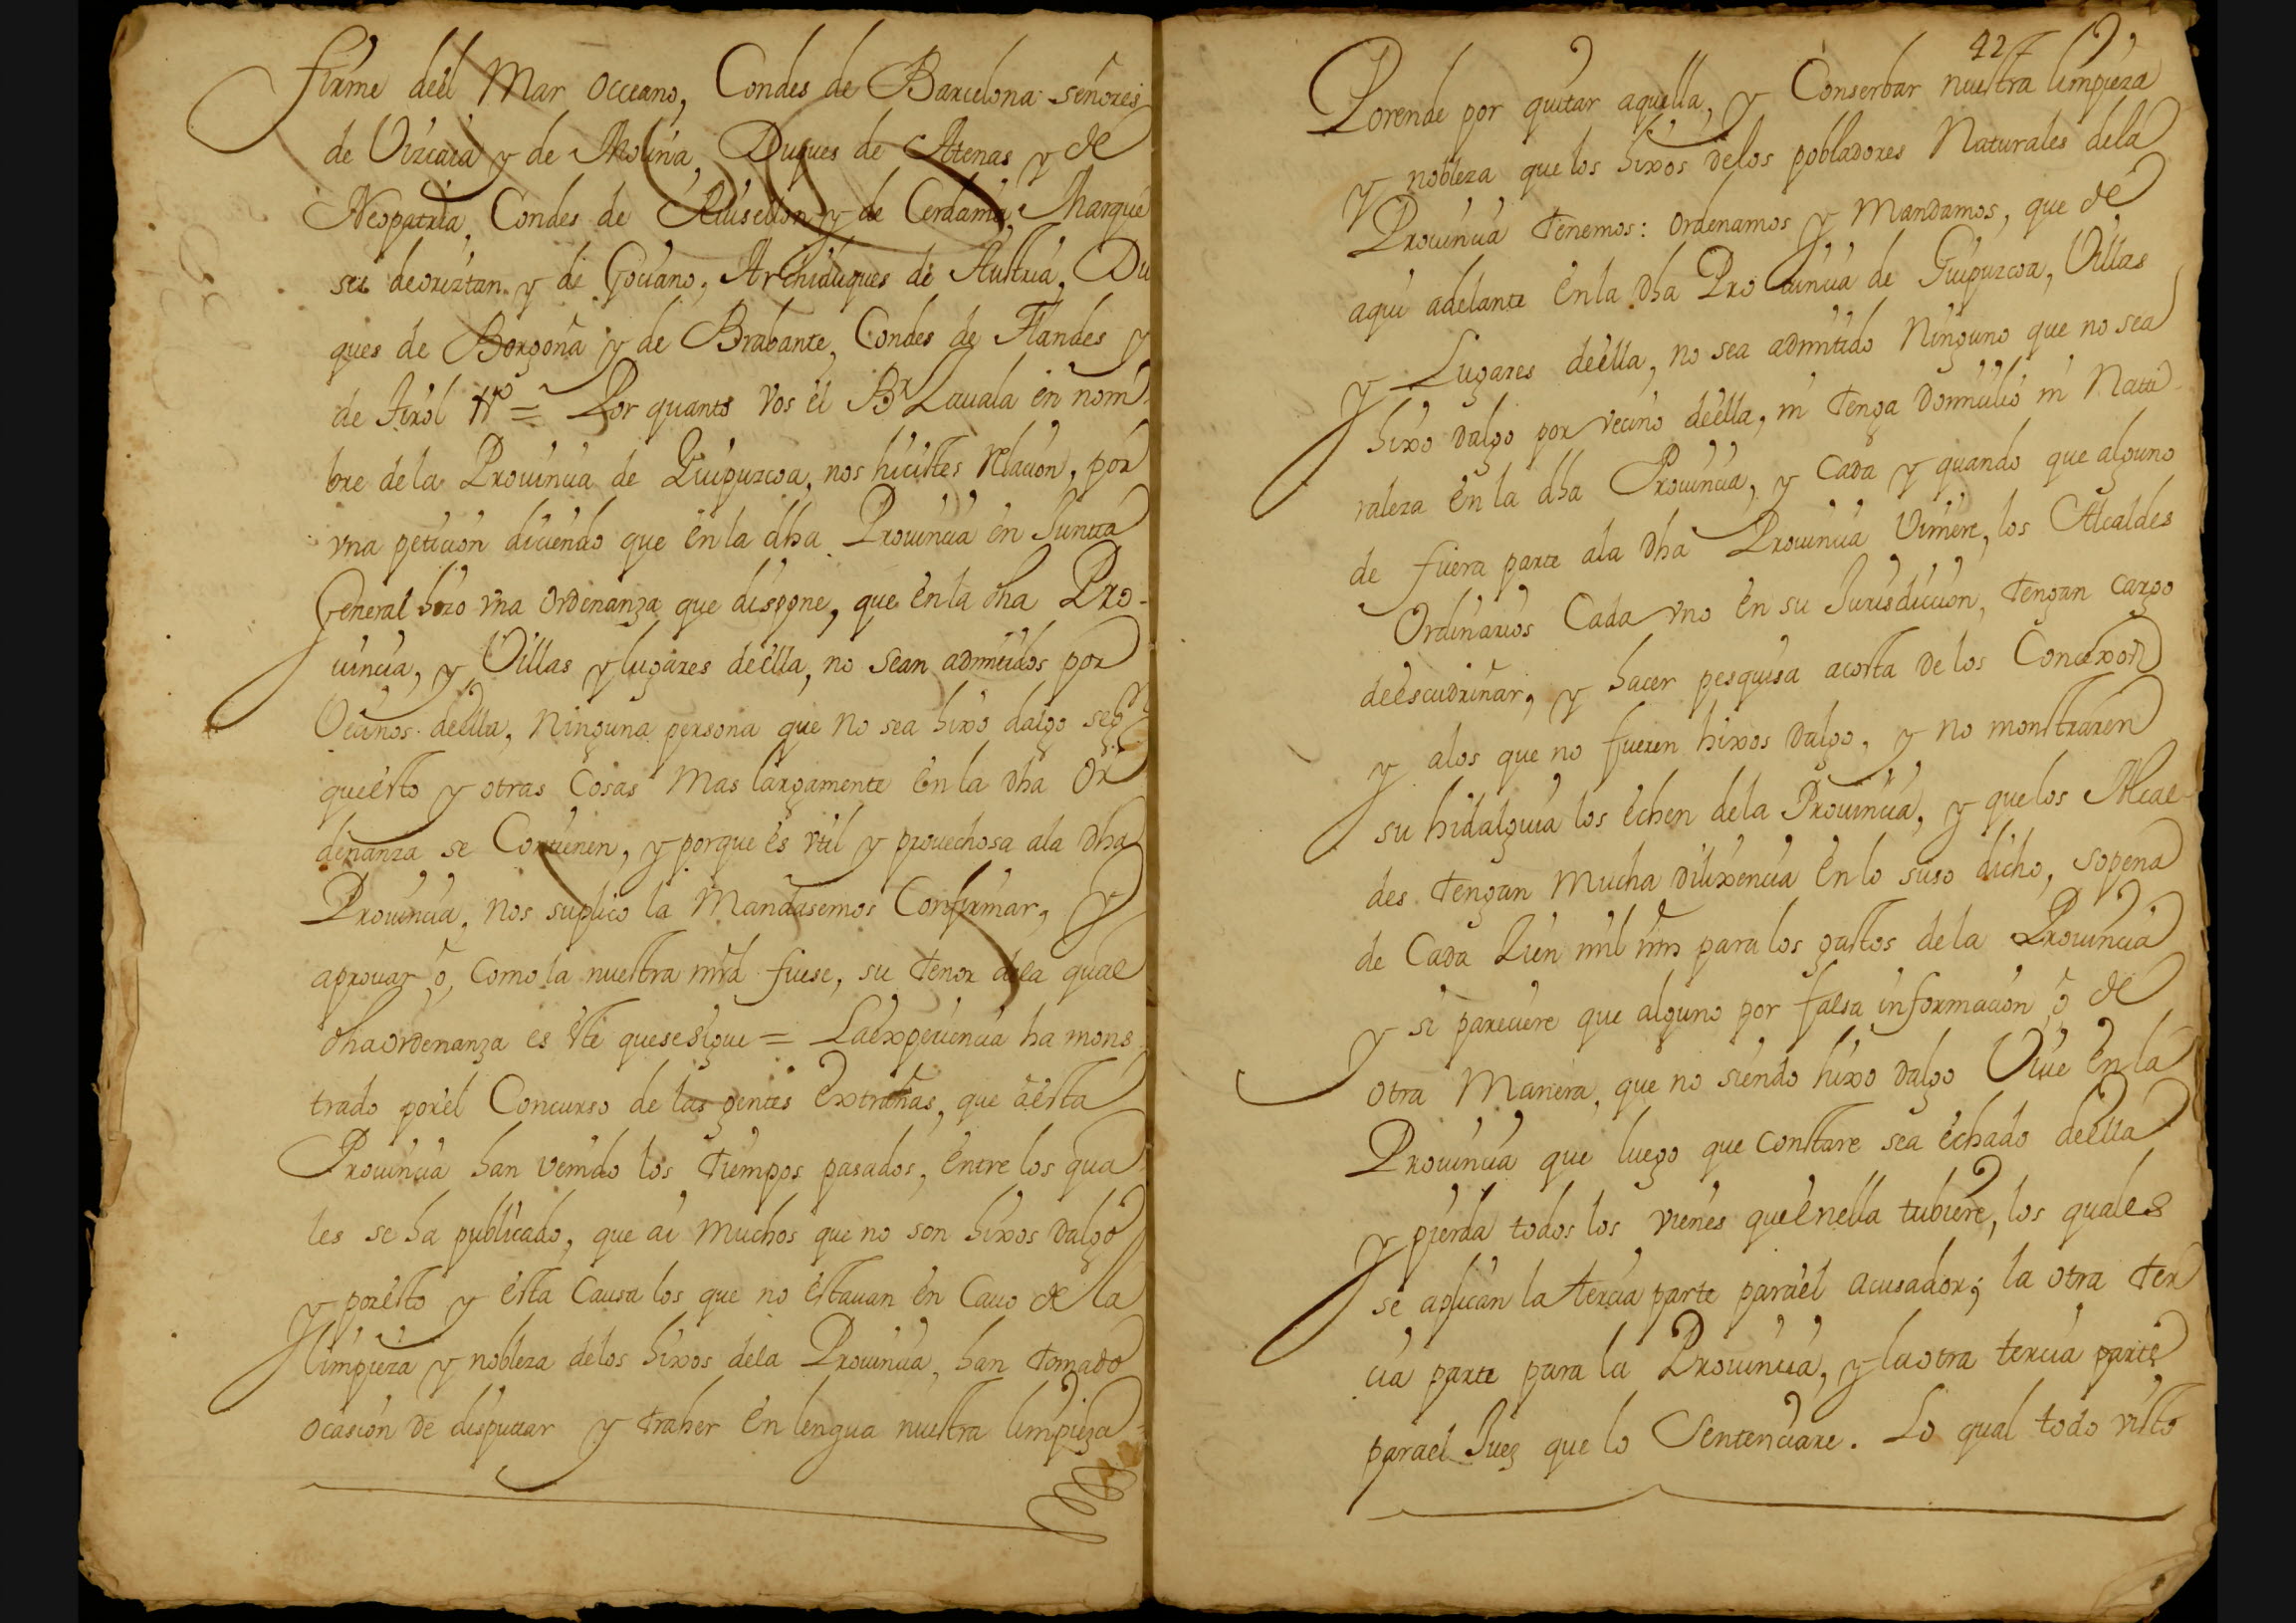 firme deel Mar occeano, Condes de Barcelona señores
de Vizcaia y de Molina, Duques de Atenas y de
Neopatria, Condes de Ruisellon y de Cerdania, Marque
ses deoriztan y de Gociano, Archiduques de Austria, Du
ques de Borgoña y de Brabante, Condes de Flandes y
de Tirol = Por quanto vos el Br Zauala en nom
bre de la Prouincia de Guipuzcoa, nos hicistes relacion, por
vna peticion diciendo que en la dha Prouincia en Junta
General hizo vna ordenanza que dispone, que en la dha Pro-
uincia, y Villas y lugares deella, no sean admitidos por
Vecinos deella, ninguna persona que no sea hixo dalgo seg
questo y otras cosas mas largamente en la dha Or
dinanza se Contienen, y porque es vtil y prouechosa ala dha
Prouincia, nos suplico la Mandasemos Confirmar, y
aprouar o, como la nuestra mrd fuese, su tenor dela qual
dha ordenanza es este que se sigue = La experiencia ha mons
trado por el Concurso de las gentes extrañas, que a esta
Prouincia han venido los tiempos pasados, entre los qua
les se ha publicado, que ai muchos que no son hixos dalgo
y por esto y esta causa los que no estauan en Cauo de la
limpieza y nobleza delos hixos dela Prouincia, han tomado
ocasion de disputar y traher en lengua nuestra limpieza
427
Porende por quitar aquella, y Conserbar nuestra limpieza
y nobleza que los hixos delos pobladores Naturales dela
Prouincia tenemos: ordenamos y Mandamos, que de
aqui adelante en la dha Prouincia de Guipuzcoa, Villas
y Lugares deella, no sea admitido Ninguno que no sea
hixo dalgo por vecino deella, ni tenga domicilio ni Natu-
raleza en la dha Prouincia, y cada y quando que alguno
de fuera parte ala dha Prouincia Viniere, los Alcaldes
Ordinarios Cada vno en su Jurisdicion, tengan cargo
de escudriñar, y hacer pesquisa acosta de los Concexos
y alos que no fueren hixos dalgo, y no monstraren
su hidalguia los echen dela Prouincia, y que los Alcal-
des tengan mucha dilixencia en lo suso dicho, sopena
de cada Zien mil mrs para los gastos de la Prouincia
y si pareciere que alguno por falsa informacion o de
otra Manera, que no siendo hixo dalgo Viue en la
Prouincia que luego que constare sea echado deella
y pierda todos los vienes que enella tubiere, los quales
se aplican la tercia parte para el acusador, la otra ter
cia parte para la Prouincia, y la otra tercia parte
para el Juez que lo Sentenciare. Lo qual todo visto